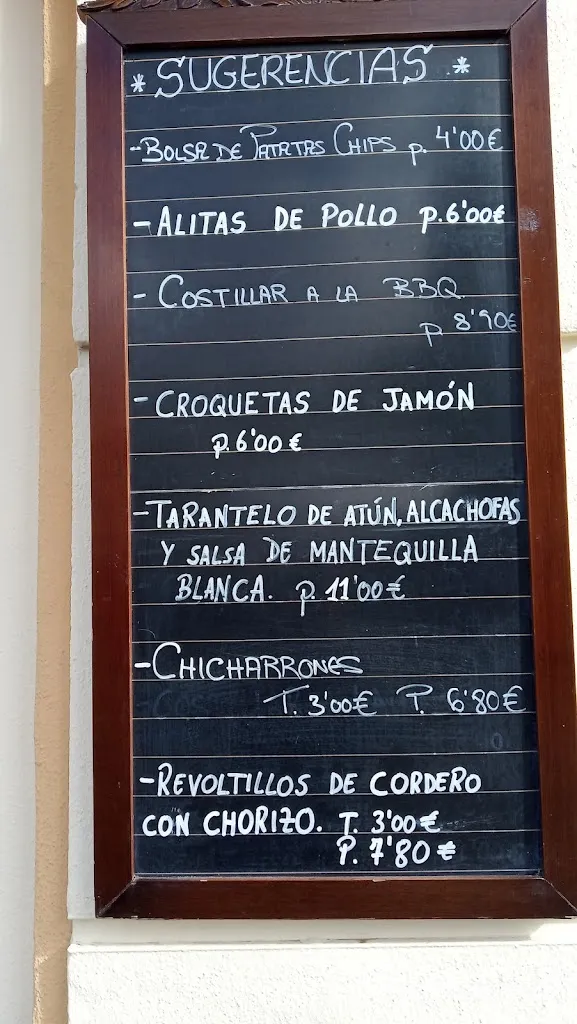 * SUGERENCIAS *
- BOLSA DE PATATAS CHIPS p. 4'00€
- ALITAS DE POLLO p. 6'00€
- COSTILLAR A LA BBQ
p 8'90€
- CROQUETAS DE JAMÓN
p. 6'00€
- TARANTELO DE ATÚN, ALCACHOFAS
Y SALSA DE MANTEQUILLA
BLANCA. p. 11'00€
- CHICHARRONES
T. 3'00€ P. 6'80€
- REVOLTILLOS DE CORDERO
CON CHORIZO. T. 3'00€
P. 7'80€